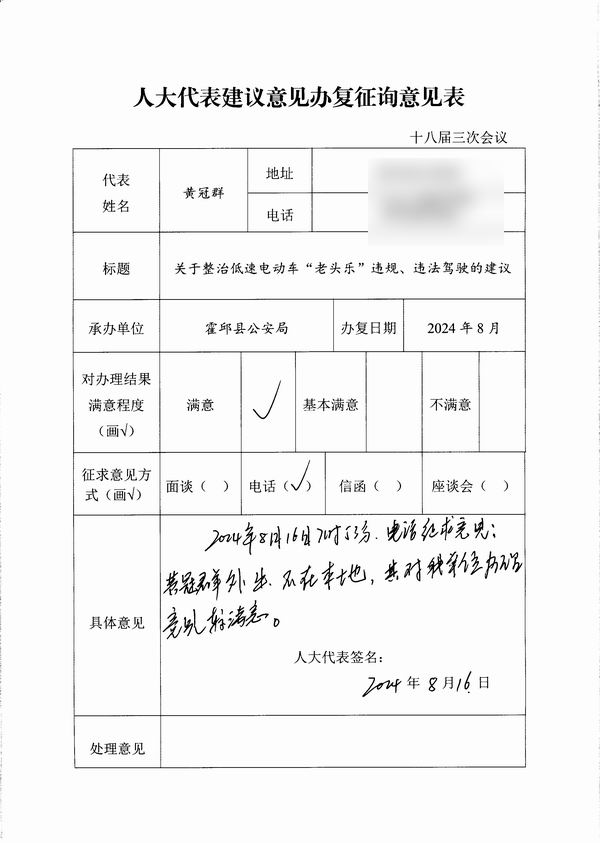 人大代表建议意见办复征询意见表
十八届三次会议
代表
姓名
黄冠群
地址
电话
标题
关于整治低速电动车“老头乐”违规、违法驾驶的建议
承办单位
霍邱县公安局
办复日期
2024 年 8 月
对办理结果
满意程度
（画√）
满意
√
基本满意
不满意
征求意见方
式（画√）
面谈（ ）
电话（√）
信函（ ）
座谈会（ ）
具体意见
2024年8月16日 7时53分.电话征求意见：
黄冠群外出.不在本地，其对我单位办理
意见较满意。
人大代表签名：
2024 年 8 月 16 日
处理意见